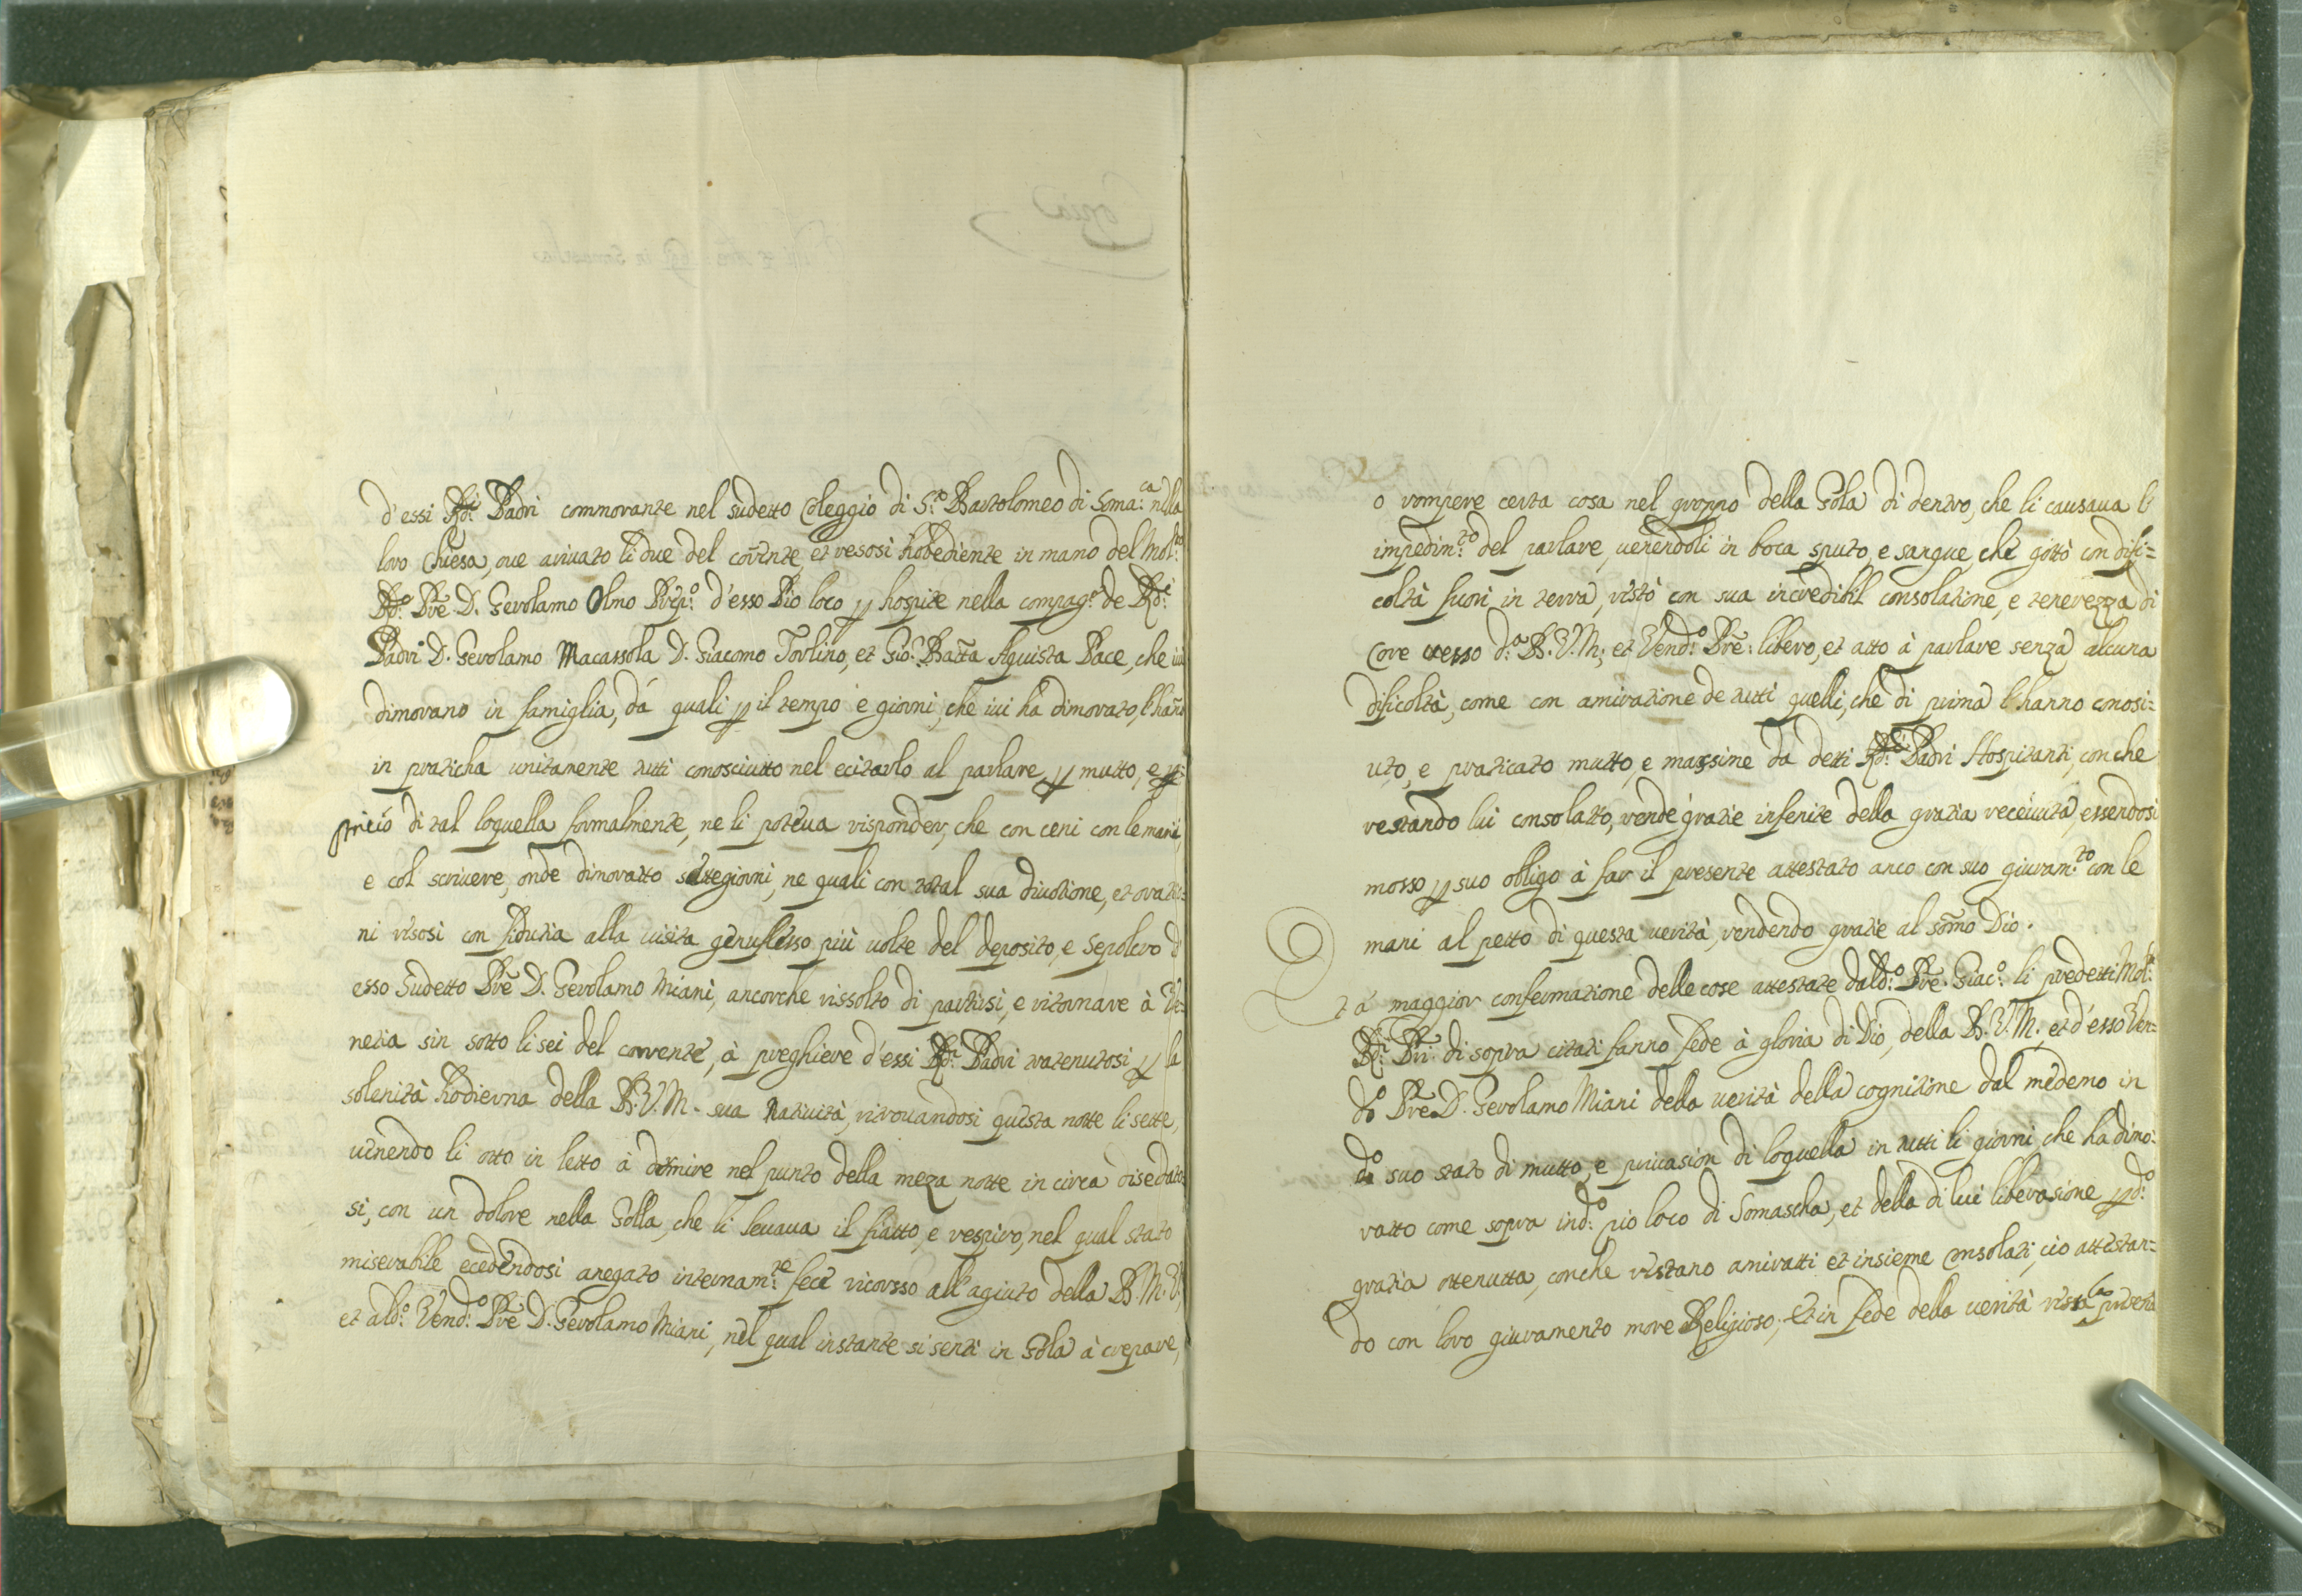 d'essi Rdi: Padri commorante nel sudetto Coleggio di S.to Bartolomeo di Soma:ca nella
loro Chiesa, oue ariuato li due del corrente, et resosi hobediente in mano del Mol:to
Rdo: Pre D. Gerolamo Olmo Prep:o d'esso Pio loco p hospite nella compag:a de Rdi:
Padri D. Gerolamo Macassola D. Giacomo Torlino, et Gio: Batta Aguista Pace, che iui
dimorano in famiglia, dà quali p il tempo e giorni, che iui ha dimorato, l'hano
in praticha unitamente tutti conosciutto nel ecitarlo al parlare p mutto, e
di tal loquella formalmente, ne li poteua risponder, che con ceni con le mani,
e col scriuere, onde dimoratto settegiorni, ne quali con total sua diuotione, et oratio-
ni resosi con fidutia alla uisita genuflesso più uolte del deposito, e Sepolcro d'
esso Sudetto Pre D. Gerolamo Miani, ancorche rissolto di partirsi, e ritornare à Ve-
netia sin sotto li sei del corrente, à preghiere d'essi Rdi: Padri tratenutosi p la
solenità hodierna della B. V. M. sua Natiuità, ritrouandosi questa notte li sette,
uenendo li otto in letto à dormire nel punto della meza notte in circa disedato-
si, con un dolore nella Golla, che li leuaua il fiatto, e respiro, nel qual stato
miserabile ecedendosi anegato internam:te fece ricorsso all'agiuto della B. M. V.
et al do: Vendo: Pre D. Gerolamo Miani, nel qual instante si senti in Gola à crepare,
o rompere certa cosa nel groppo della Gola di dentro, che li causaua l'
impedim:to del parlare, uenendoli in boca sputo, e sangue, che gittò con difi=
coltà fuori in terra, restò con sua incredibil consolatione, e tenerezza di
Core uerso da: B. V. M; et Vendo: Pre: libero, et atto à parlare senza alcuna
dificoltà, come con amiratione de tutti quelli, che di prima l'hanno conosi=
uto, e praticato mutto, e massime da detti Rdi: Padri Hospitanti, con che
restando lui consolatto, rende gratie infenite della gratia receiuuta, essendosi
mosso p suo obligo à far il presente attestato anco con suo giuram:to con le
mani al petto di questa uerità, rendendo gratie al somo Dio.
Et à maggior confermatione delle cose attestate dal do: Pre. Giac:o li predetti Mol:ti
Rdi: Pri: di sopra citati fanno fede à gloria di Dio, della B. V. M., et d'esso Ven-
do Pre D. Gerolamo Miani della uerità della cognitione dal medemo in
do suo stato di mutto, e priuasion di loquella in tutti li giorni che ha dimo:
ratto come sopra in do: pio loco di Somascha, et della di lui liberasione p do:
gratia ottenutta, conche restano amiratti et insieme Consolati, cio attestan=
do con loro giuramento more Religioso; Et in fede della uerità presente